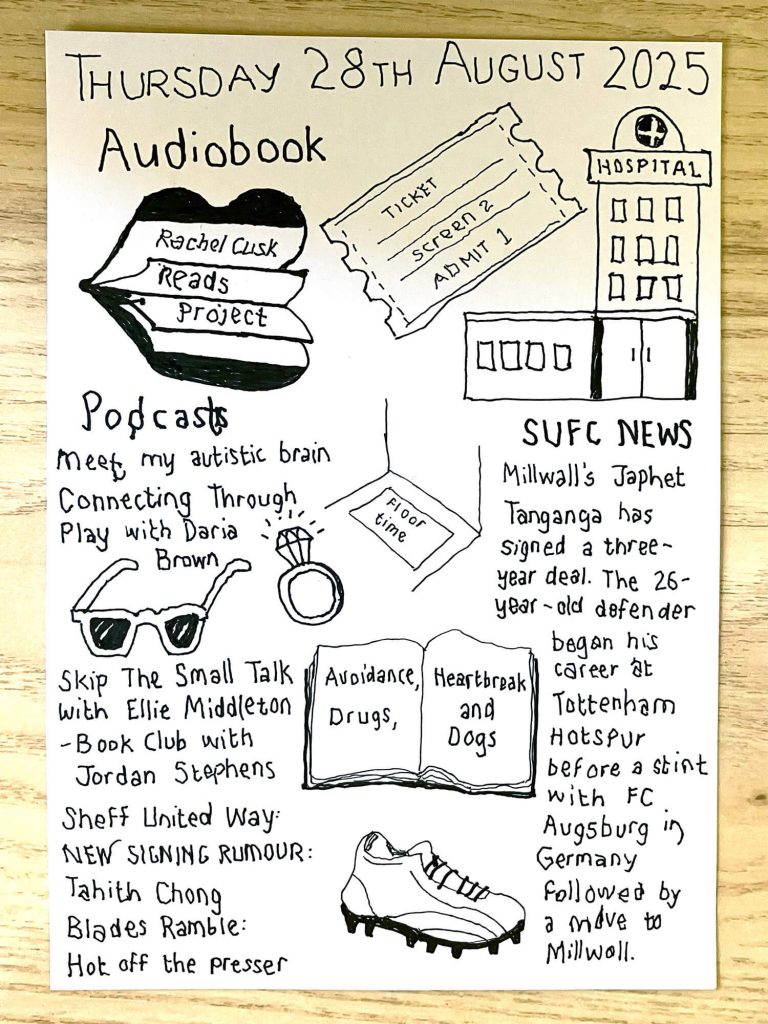 THURSDAY 28TH AUGUST 2025
Audiobook
Rachel Cusk
Reads
Project
TICKET
screen 2
ADMIT 1
HOSPITAL
Podcasts
Meet my autistic brain
Connecting Through
Play with Daria
Brown
Floor
time
Skip The Small Talk
with Ellie Middleton
- Book Club with
Jordan Stephens
Avoidance,
Drugs,
Heartbreak
and
Dogs
Sheff United Way:
NEW SIGNING RUMOUR:
Tahith Chong
Blades Ramble:
Hot off the presser
SUFC NEWS
Millwall's Japhet
Tanganga has
signed a three-
year deal. The 26-
year-old defender
began his
career at
Tottenham
Hotspur
before a stint
with FC
Augsburg in
Germany
followed by
a move to
Millwall.